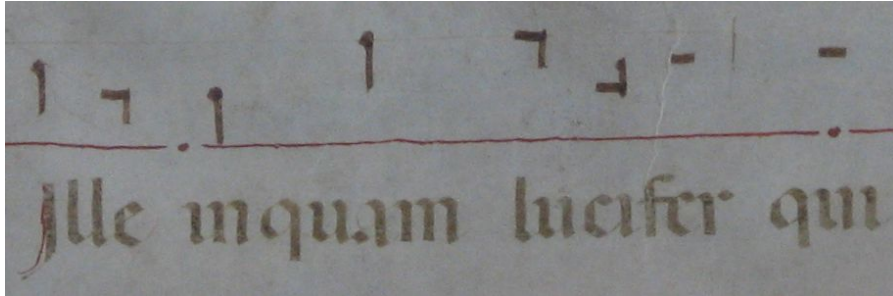 Ille inquam lucifer qui